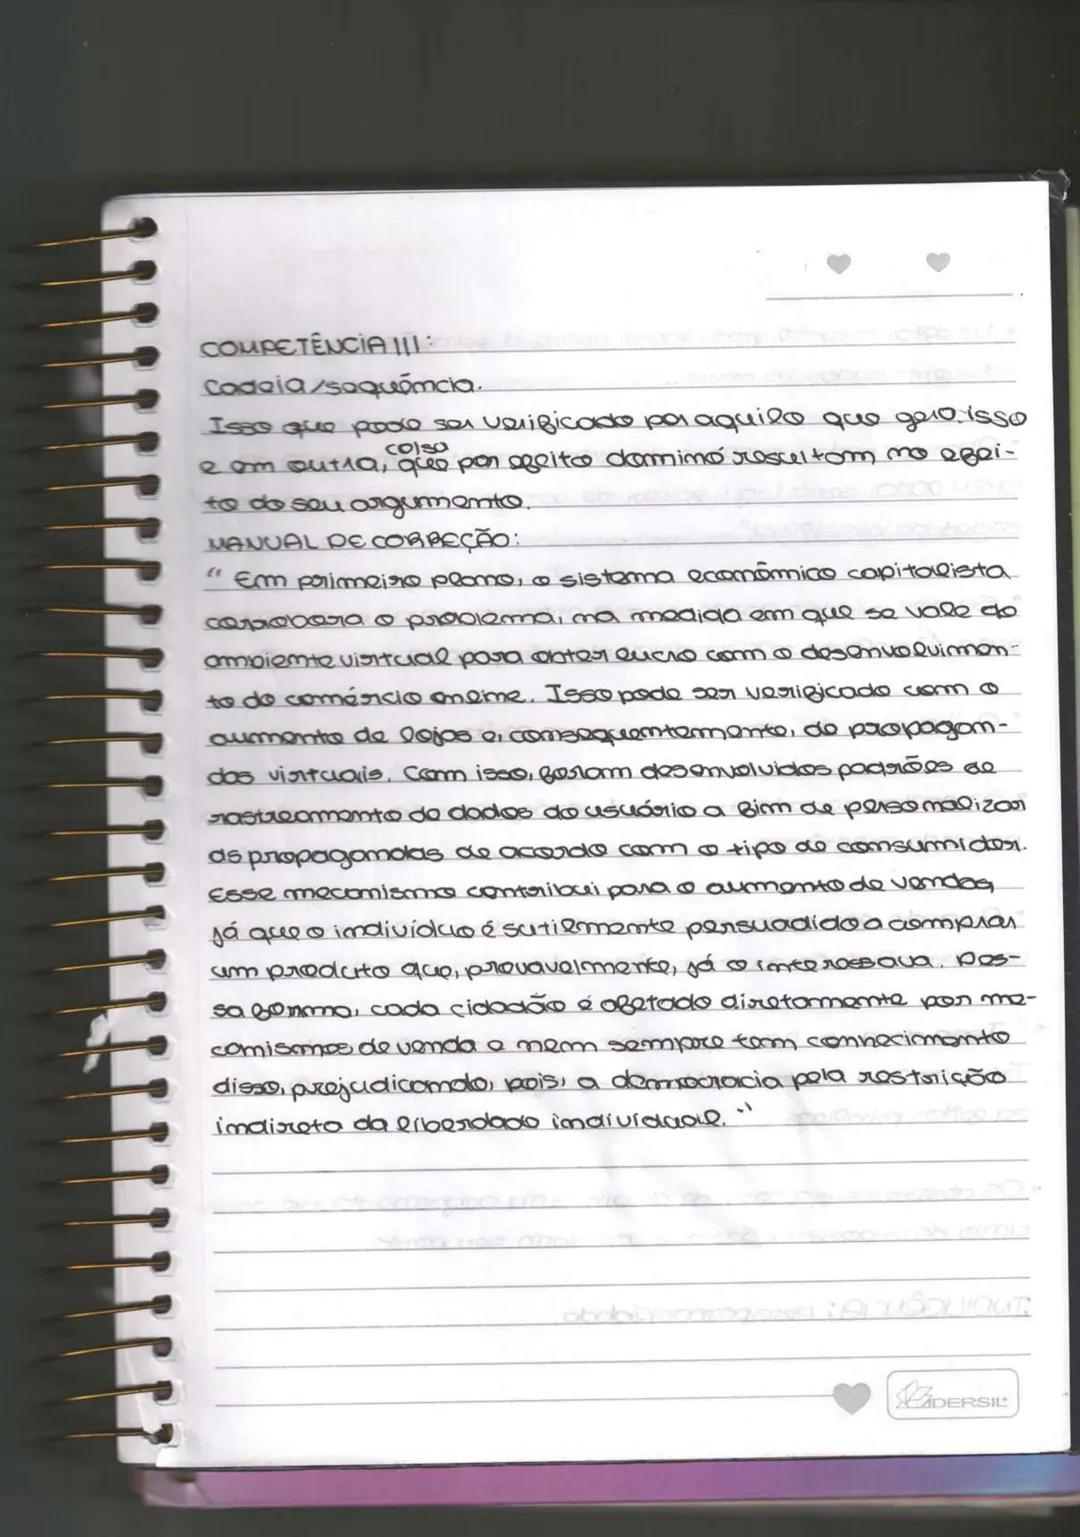 COMPETÊNCIA III:
Cadeia/sequência.
Isso que pode ser verificado por aquilo que gera isso
e em outra, coisa que por efeito dominó resultam no efei-
to do seu argumento.
MANUAL DE CORREÇÃO:
" Em primeiro plano, o sistema econômico capitalista
corrobora o problema, na medida em que se vale do
ambiente virtual para obter lucro com o desenvolvimen-
to do comércio online. Isso pode ser verificado com o
aumento de lojas e, consequentemente, de propagan-
das virtuais. Com isso, foram desenvolvidos padrões de
rastreamento de dados do usuário a fim de personalizar
as propagandas de acordo com o tipo de consumidor.
Esse mecanismo contribui para o aumento de vendas,
já que o indivíduo é sutilmente persuadido a comprar
um produto que, provavelmente, já o interessava. Des-
sa forma, cada cidadão é afetado diretamente por me-
canismos de venda e nem sempre tem conhecimento
disso, prejudicando, pois, a democracia pela restrição
indireta da liberdade individual. "
ADERSIL